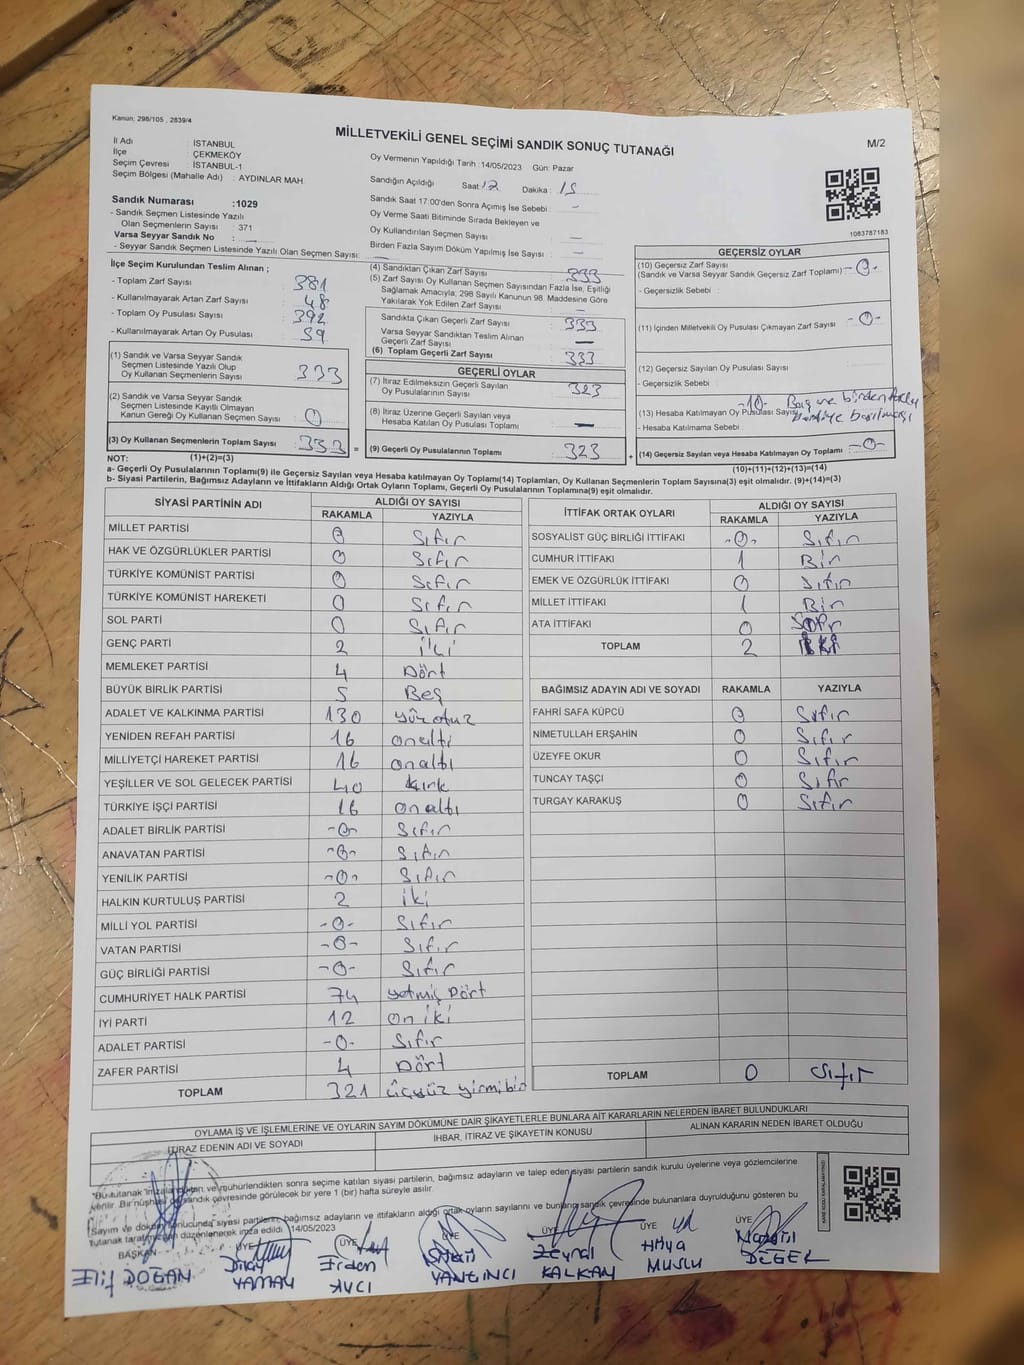 Kanun: 298/105 , 2839/4
MİLLETVEKİLİ GENEL SEÇİMİ SANDIK SONUÇ TUTANAĞI
M/2
İl Adı : İSTANBUL
İlçe : ÇEKMEKÖY
Seçim Çevresi : İSTANBUL-1
Seçim Bölgesi (Mahalle Adı) : AYDINLAR MAH.
Oy Vermenin Yapıldığı Tarih : 14/05/2023 Gün: Pazar
Sandığın Açıldığı Saat : 17 Dakika : 15
Sandık Saat 17:00'den Sonra Açımış İse Sebebi : -
Oy Verme Saati Bitiminde Sırada Bekleyen ve
Oy Kullandırılan Seçmen Sayısı : -
Birden Fazla Sayım Döküm Yapılmış İse Sayısı : -
1083787183
Sandık Numarası :1029
- Sandık Seçmen Listesinde Yazılı
Olan Seçmenlerin Sayısı : 371
Varsa Seyyar Sandık No : -
- Seyyar Sandık Seçmen Listesinde Yazılı Olan Seçmen Sayısı: -
İlçe Seçim Kurulundan Teslim Alınan ;
- Toplam Zarf Sayısı : 381
- Kullanılmayarak Artan Zarf Sayısı : 48
- Toplam Oy Pusulası Sayısı : 392
- Kullanılmayarak Artan Oy Pusulası : 59
(1) Sandık ve Varsa Seyyar Sandık
Seçmen Listesinde Yazılı Olup
Oy Kullanan Seçmenlerin Sayısı : 333
(2) Sandık ve Varsa Seyyar Sandık
Seçmen Listesinde Kayıtlı Olmayan
Kanun Gereği Oy Kullanan Seçmen Sayısı : 0
(3) Oy Kullanan Seçmenlerin Toplam Sayısı : 333
(4) Sandıktan Çıkan Zarf Sayısı : 333
(5) Zarf Sayısı Oy Kullanan Seçmen Sayısından Fazla İse, Eşitliği
Sağlamak Amacıyla; 298 Sayılı Kanunun 98. Maddesine Göre
Yakılarak Yok Edilen Zarf Sayısı : -
Sandıkta Çıkan Geçerli Zarf Sayısı : 333
Varsa Seyyar Sandıktan Teslim Alınan
Geçerli Zarf Sayısı : -
(6) Toplam Geçerli Zarf Sayısı : 333
GEÇERLİ OYLAR
(7) İtiraz Edilmeksizin Geçerli Sayılan
Oy Pusulalarının Sayısı : 323
(8) İtiraz Üzerine Geçerli Sayılan veya
Hesaba Katılan Oy Pusulası Toplamı : -
= (9) Geçerli Oy Pusulalarının Toplamı : 323 +
GEÇERSİZ OYLAR
(10) Geçersiz Zarf Sayısı
(Sandık ve Varsa Seyyar Sandık Geçersiz Zarf Toplamı) -0-
- Geçersizlik Sebebi :
(11) İçinden Milletvekili Oy Pusulası Çıkmayan Zarf Sayısı : -0-
(12) Geçersiz Sayılan Oy Pusulası Sayısı :
- Geçersizlik Sebebi :
-10- Boş ve birden fazla
(13) Hesaba Katılmayan Oy Pusulası Sayısı : partiye basılması
- Hesaba Katılmama Sebebi :
(14) Geçersiz Sayılan veya Hesaba Katılmayan Oy Toplamı : -0-
NOT: (1)+(2)=(3)
(10)+(11)+(12)+(13)=(14)
a- Geçerli Oy Pusulalarının Toplamı(9) ile Geçersiz Sayılan veya Hesaba Katılmayan Oy Toplamı(14) Toplamları, Oy Kullanan Seçmenlerin Toplam Sayısına(3) eşit olmalıdır. (9)+(14)=(3)
b- Siyasi Partilerin, Bağımsız Adayların ve İttifakların Aldığı Ortak Oyların Toplamı, Geçerli Oy Pusulalarının Toplamına(9) eşit olmalıdır.
SİYASİ PARTİNİN ADI ALDIĞI OY SAYISI
RAKAMLA YAZIYLA
MİLLET PARTİSİ 0 Sıfır
HAK VE ÖZGÜRLÜKLER PARTİSİ 0 Sıfır
TÜRKİYE KOMÜNİST PARTİSİ 0 Sıfır
TÜRKİYE KOMÜNİST HAREKETİ 0 Sıfır
SOL PARTİ 0 Sıfır
GENÇ PARTİ 2 İki
MEMLEKET PARTİSİ 4 Dört
BÜYÜK BİRLİK PARTİSİ 5 Beş
ADALET VE KALKINMA PARTİSİ 130 yüz otuz
YENİDEN REFAH PARTİSİ 16 onaltı
MİLLİYETÇİ HAREKET PARTİSİ 16 onaltı
YEŞİLLER VE SOL GELECEK PARTİSİ 40 kırk
TÜRKİYE İŞÇİ PARTİSİ 16 onaltı
ADALET BİRLİK PARTİSİ -0- Sıfır
ANAVATAN PARTİSİ -0- Sıfır
YENİLİK PARTİSİ -0- Sıfır
HALKIN KURTULUŞ PARTİSİ 2 iki
MİLLİ YOL PARTİSİ -0- Sıfır
VATAN PARTİSİ -0- Sıfır
GÜÇ BİRLİĞİ PARTİSİ -0- Sıfır
CUMHURİYET HALK PARTİSİ 74 yetmiş Dört
İYİ PARTİ 12 on iki
ADALET PARTİSİ -0- Sıfır
ZAFER PARTİSİ 4 Dört
TOPLAM 321 üçyüz yirmibir
İTTİFAK ORTAK OYLARI ALDIĞI OY SAYISI
RAKAMLA YAZIYLA
SOSYALİST GÜÇ BİRLİĞİ İTTİFAKI -0- Sıfır
CUMHUR İTTİFAKI 1 Bir
EMEK VE ÖZGÜRLÜK İTTİFAKI 0 Sıfır
MİLLET İTTİFAKI 1 Bir
ATA İTTİFAKI 0 Sıfır
TOPLAM 2 İki
BAĞIMSIZ ADAYIN ADI VE SOYADI RAKAMLA YAZIYLA
FAHRİ SAFA KÜPCÜ 0 Sıfır
NİMETULLAH ERŞAHİN 0 Sıfır
ÜZEYFE OKUR 0 Sıfır
TUNCAY TAŞÇI 0 Sıfır
TURGAY KARAKUŞ 0 Sıfır
TOPLAM 0 Sıfır
OYLAMA İŞ VE İŞLEMLERİNE VE OYLARIN SAYIM DÖKÜMÜNE DAİR ŞİKAYETLERLE BUNLARA AİT KARARLARIN NELERDEN İBARET BULUNDUKLARI
İTİRAZ EDENİN ADI VE SOYADI İHBAR, İTİRAZ VE ŞİKAYETİN KONUSU ALINAN KARARIN NEDEN İBARET OLDUĞU
"Bu tutanak imzalandıktan ve mühürlendikten sonra seçime katılan siyasi partilerin, bağımsız adayların ve talep eden siyasi partilerin sandık kurulu üyelerine veya gözlemcilerine
verilir. Bir nüshası da sandık çevresinde görülecek bir yere 1 (bir) hafta süreyle asılır.
Sayım ve döküm sonucunda siyasi partilerin, bağımsız adayların ve ittifakların aldığı ortak oyların sayılarını ve bunların sandık çevresinde bulunanlara duyurulduğunu gösteren bu
tutanak tarafımızdan düzenlenerek imza edildi. 14/05/2023
BAŞKAN ÜYE ÜYE ÜYE ÜYE ÜYE ÜYE
Elif DOĞAN
YAMAN
Erden AVCI
YANGINCI
Zeynal KALKAN
Hülya MUSLU
DEĞER